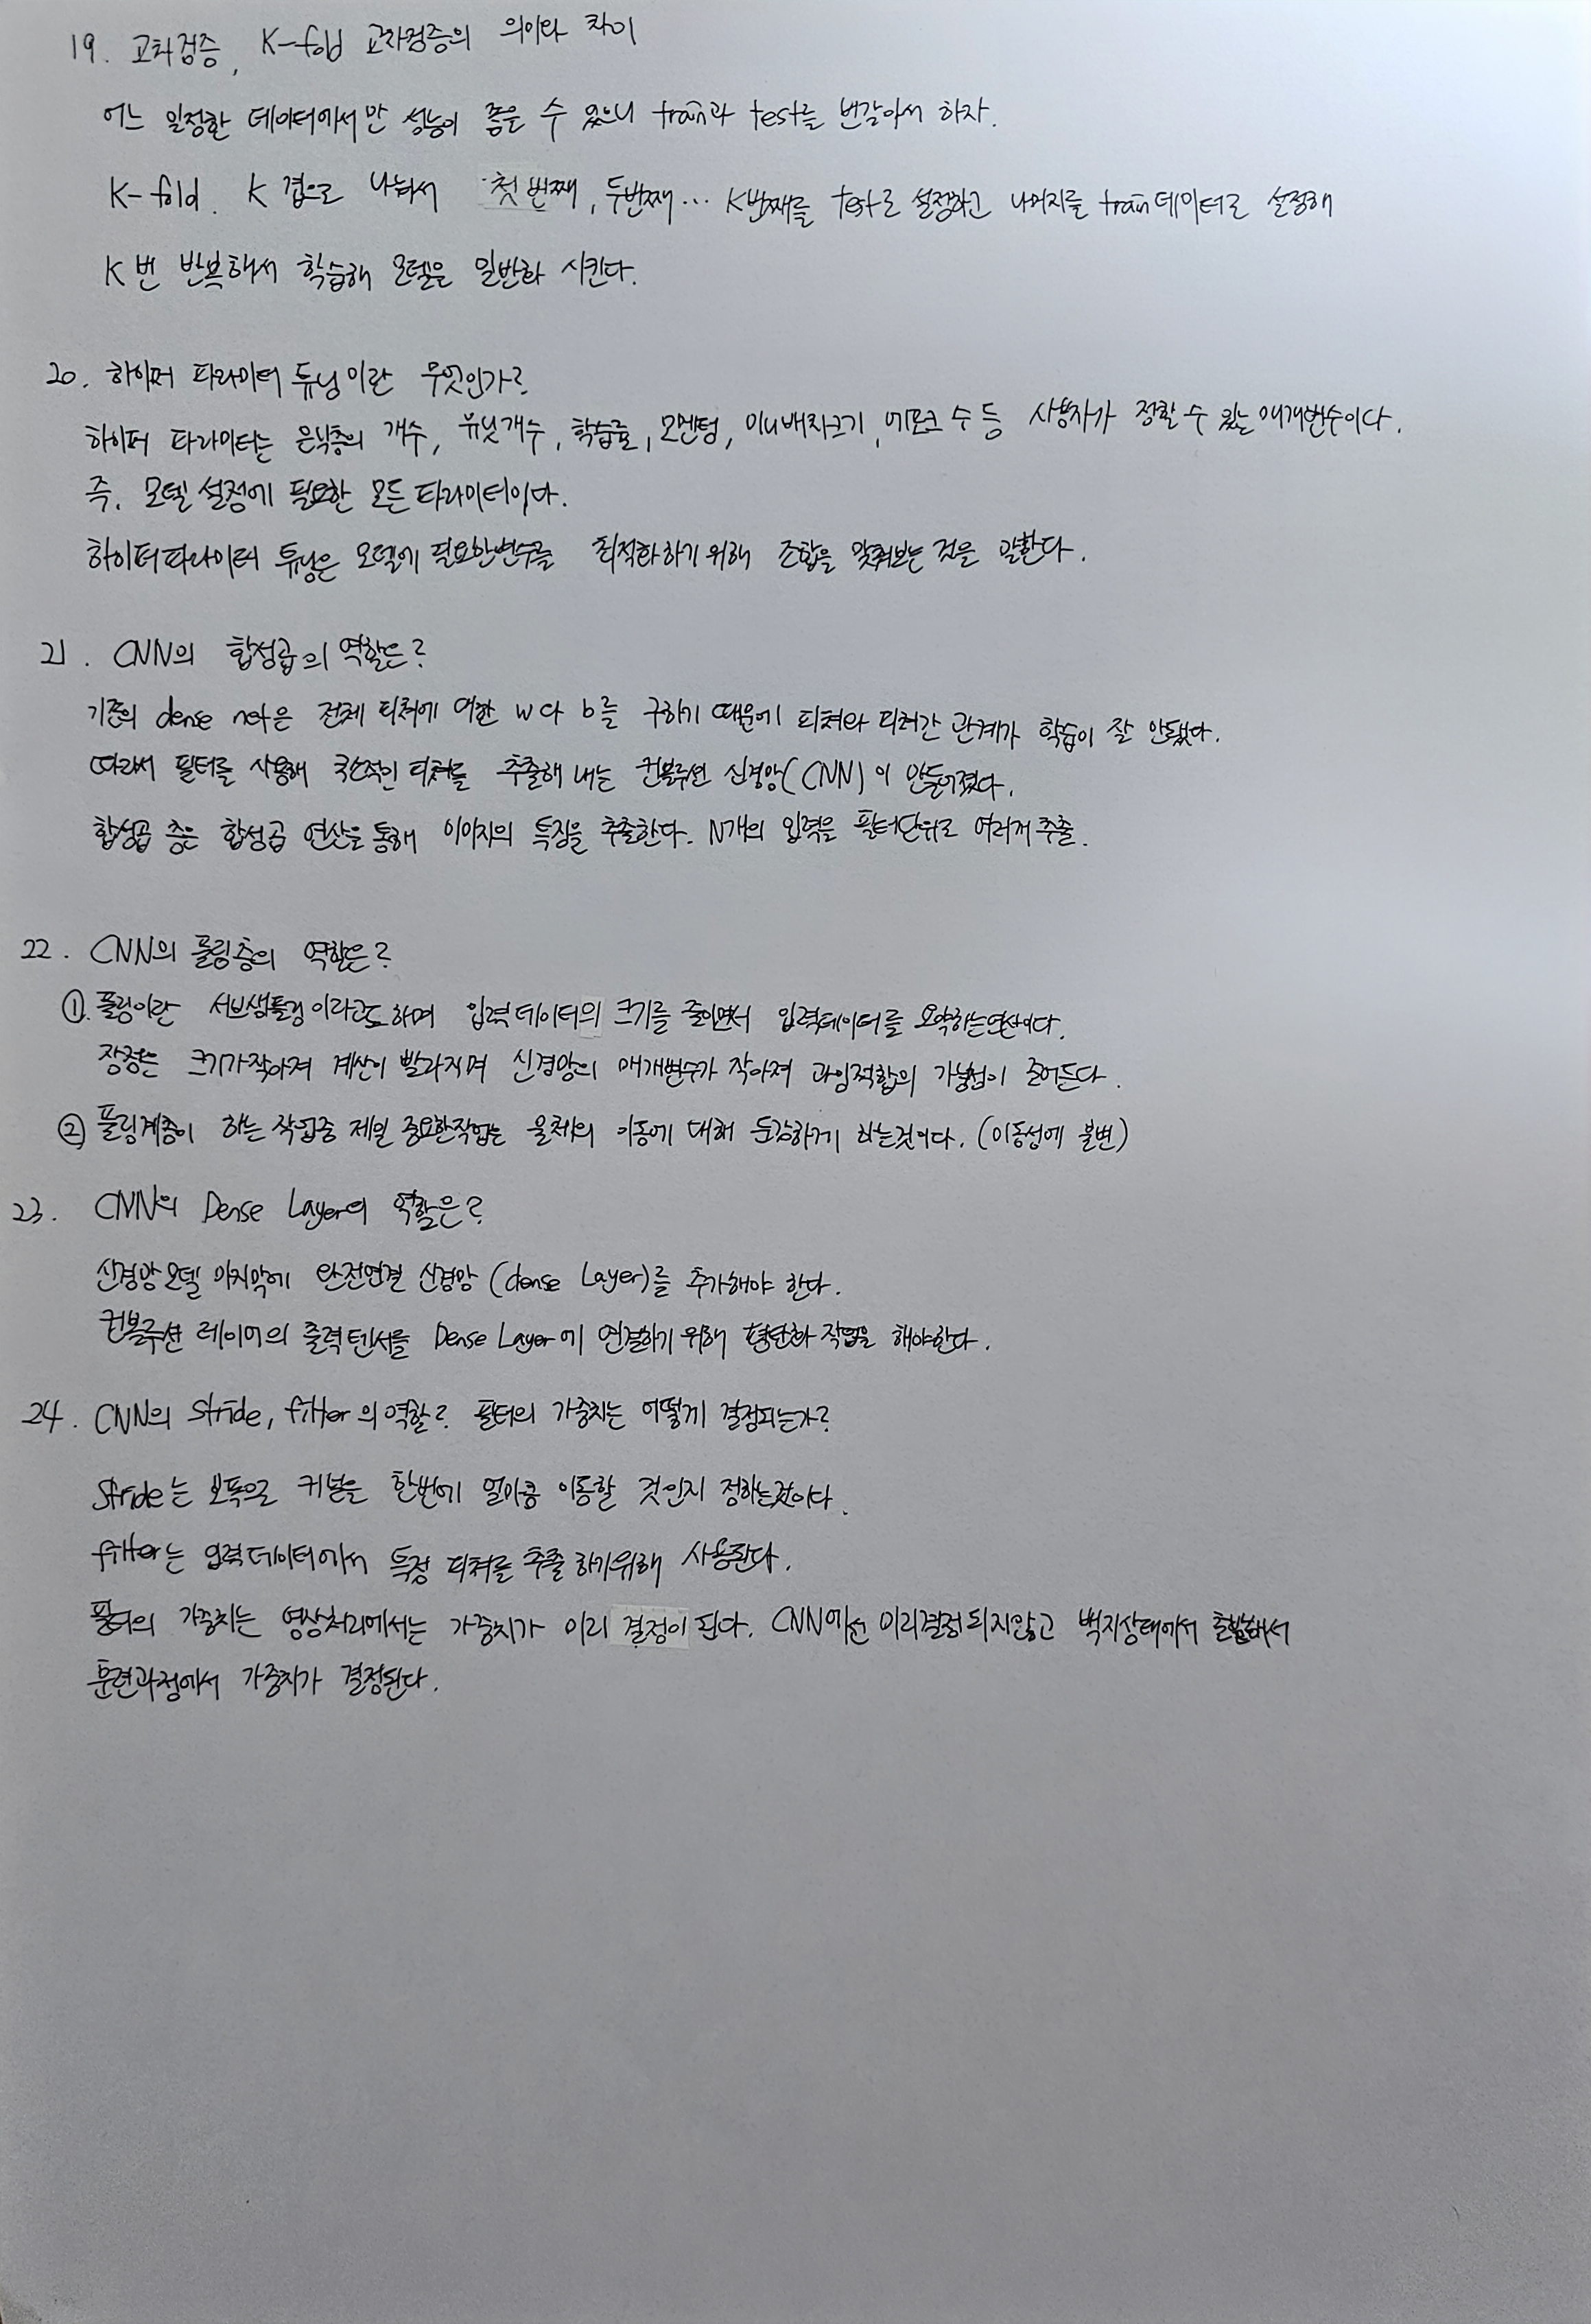 19. 교차검증, K-fold 교차검증의 의미와 차이
어느 일정한 데이터에서만 성능이 좋을 수 있으니 train과 test를 번갈아서 하자.
K-fold. K 겹으로 나눠서 첫 번째, 두번째... K번째를 test로 설정하고 나머지를 train데이터로 설정해
K번 반복해서 학습해 모델을 일반화 시킨다.
20. 하이퍼 파라미터 튜닝이란 무엇인가?
하이퍼 파라미터는 은닉층의 개수, 유닛개수, 학습률, 모멘텀, 미니배치크기, 에포크 수 등 사용자가 정할 수 있는 매개변수이다.
즉, 모델 설정에 필요한 모든 파라미터이다.
하이퍼파라미터 튜닝은 모델에 필요한변수를 최적화하기 위해 조합을 맞춰보는 것을 말한다.
21. CNN의 합성곱의 역할은?
기존의 dense net은 전체 피쳐에 대한 w다 b를 구하기 때문에 피쳐와 피쳐간 관계가 학습이 잘 안됐다.
따라서 필터를 사용해 국소적인 피쳐를 추출해 내는 컨볼루션 신경망(CNN)이 만들어졌다.
합성곱 층은 합성곱 연산을 통해 이미지의 특징을 추출한다. N개의 입력을 필터단위로 여러개 추출.
22. CNN의 풀링층의 역할은?
① 풀링이란 서브샘플링 이라고도 하며 입력데이터의 크기를 줄이면서 입력데이터를 요약하는연산이다.
장점은 크기가작아져 계산이 빨라지며 신경망의 매개변수가 작아져 과잉적합의 가능성이 줄어든다.
② 풀링계층이 하는 작업중 제일 중요한작업은 물체의 이동에 대해 둔감하게 하는것이다. (이동성에 불변)
23. CNN의 Dense Layer의 역할은?
신경망모델 마지막에 완전연결 신경망 (dense Layer)를 추가해야 한다.
컨볼루션 레이어의 출력텐서를 Dense Layer에 연결하기 위해 평탄화 작업을 해야한다.
24. CNN의 Stride, filter의 역할? 필터의 가중치는 어떻게 결정되는가?
Stride는 보폭으로 커널을 한번에 얼마큼 이동할 것인지 정하는것이다.
filter는 입력데이터에서 특정 피쳐를 추출 하기위해 사용된다.
필터의 가중치는 영상처리에서는 가중치가 미리 결정이 된다. CNN에선 미리결정되지않고 백지상태에서 출발해서
훈련과정에서 가중치가 결정된다.